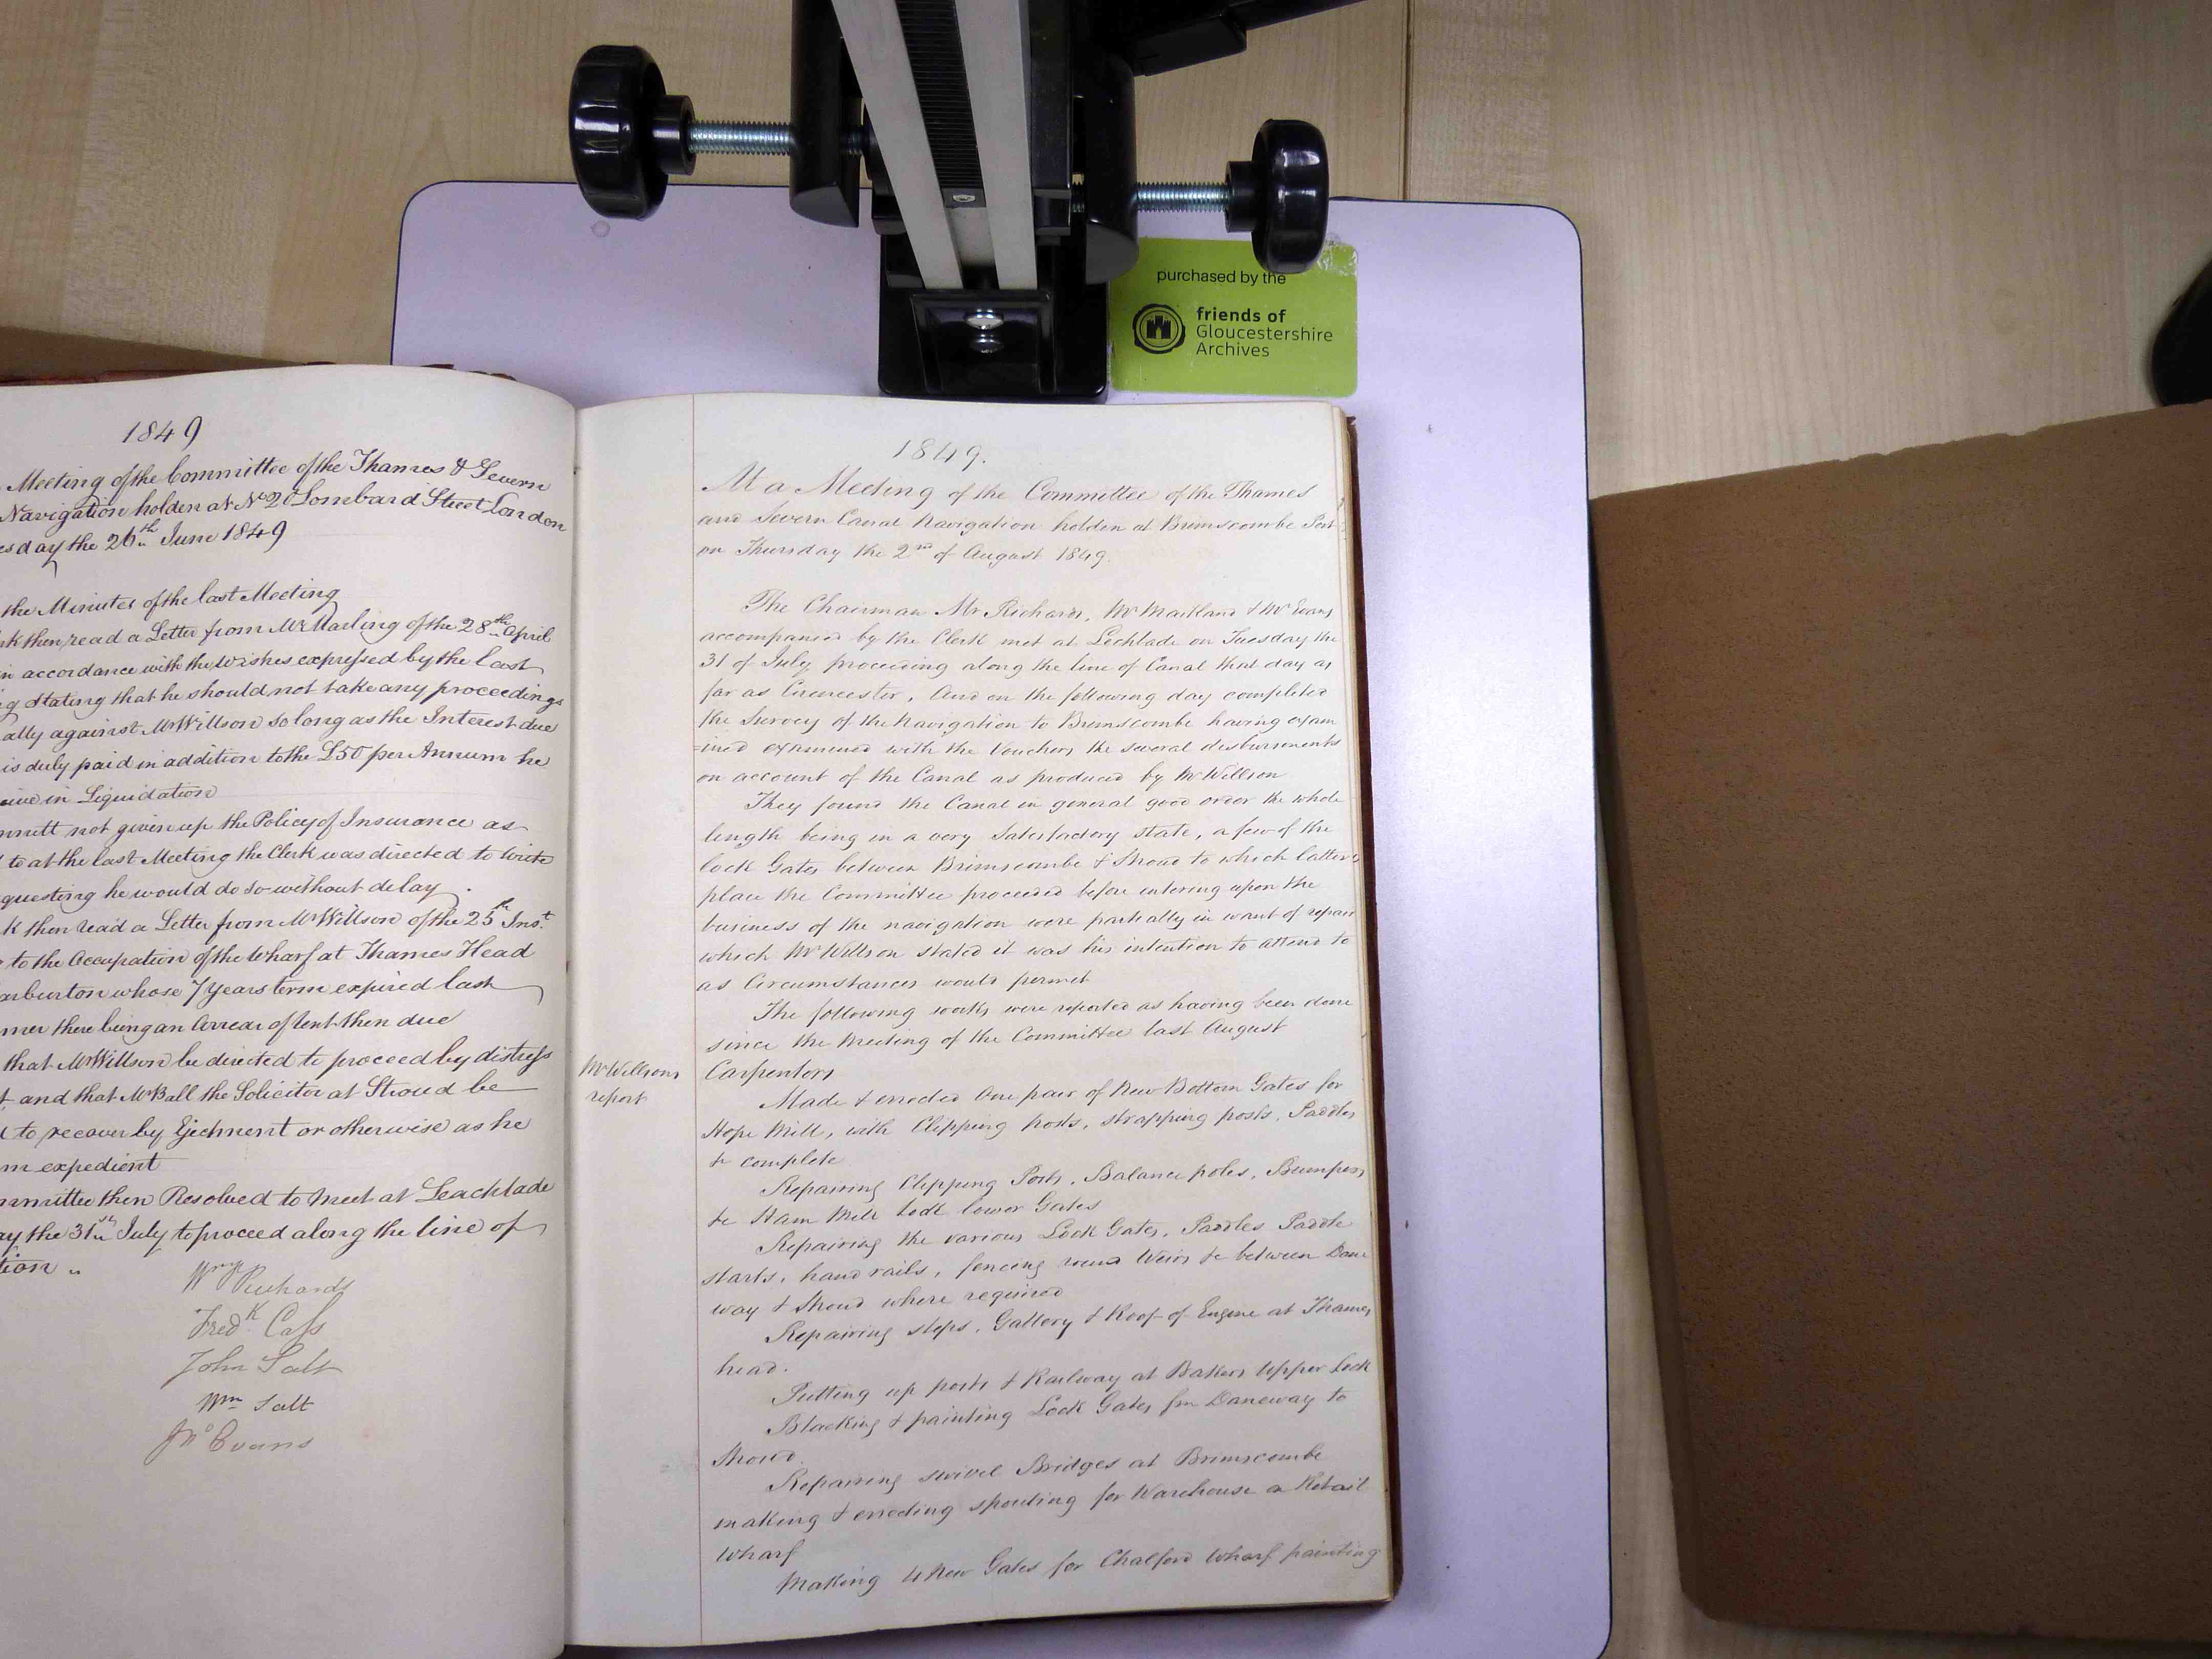 purchased by the
friends of
Gloucestershire
Archives
1849
Meeting of the Committee of the Thames & Severn
Navigation holden at No 20 Lombard Street London
esday the 26th June 1849
the Minutes of the last Meeting
rk then read a Letter from Mr Marling of the 28th April
in accordance with the wishes expressed by the last
g stating that he should not take any proceedings
ally against Mr Willson so long as the Interest due
is duly paid in addition to the £50 per Annum he
in Liquidation
not given up the Policy of Insurance as
to at the last Meeting the Clerk was directed to write
questing he would do so without delay.
k then read a Letter from Mr Willson of the 25th Inst
to the Occupation of the Wharf at Thames Head
arburton whose 7 Years term expired last
mer there being an Arrear of rent then due
that Mr Willson be directed to proceed by distress
t and that Mr Ball the Solicitor at Stroud be
to recover by Ejectment or otherwise as he
m expedient
mmittee then Resolved to meet at Leachlade
ay the 31st July to proceed along the line of
tion
Wm Richards
Fredk Cass
John Salt
Wm Salt
Jno Evans
1849.
At a Meeting of the Committee of the Thames
and Severn Canal Navigation holden at Brimscombe Port
on Thursday the 2nd of August 1849.
The Chairman Mr Richards, Mr Maitland & Mr Evans
accompanied by the Clerk met at Lechlade on Tuesday the
31 of July proceeding along the line of Canal that day as
far as Cirencester, And on the following day completed
the Survey of the Navigation to Brimscombe having exam
=ined examined with the Vouchers the several disbursements
on account of the Canal as produced by Mr Willson
They found the Canal in general good order the whole
length being in a very Satisfactory state, a few of the
lock Gates between Brimscombe & Stroud to which latter
place the Committee proceeded before entering upon the
business of the navigation were partially in want of repair
which Mr Willson stated it was his intention to attend to
as Circumstances would permit
The following works were reported as having been done
since the Meeting of the Committee last August
Mr Willsons
report
Carpenters
Made & erected One pair of New Bottom Gates for
Hope Mill, with Clipping posts, strapping posts, Paddles
&c complete
Repairing Clipping Posts, Balance poles, Bumpers
&c Ham Mill Lock lower Gates
Repairing the various Lock Gates, Paddles Paddle
starts, hand rails, fencing round Weirs &c between Dane
way & Stroud where required
Repairing steps, Gallery & Roof of Engine at Thames
head.
Putting up posts & Railway at Bakers Upper Lock
Blacking & painting Lock Gates fm Daneway to
Stroud.
Repairing swivel Bridges at Brimscombe
making & erecting spouting for Warehouse a Retail
Wharf
Making 4 New Gates for Chalford Wharf painting